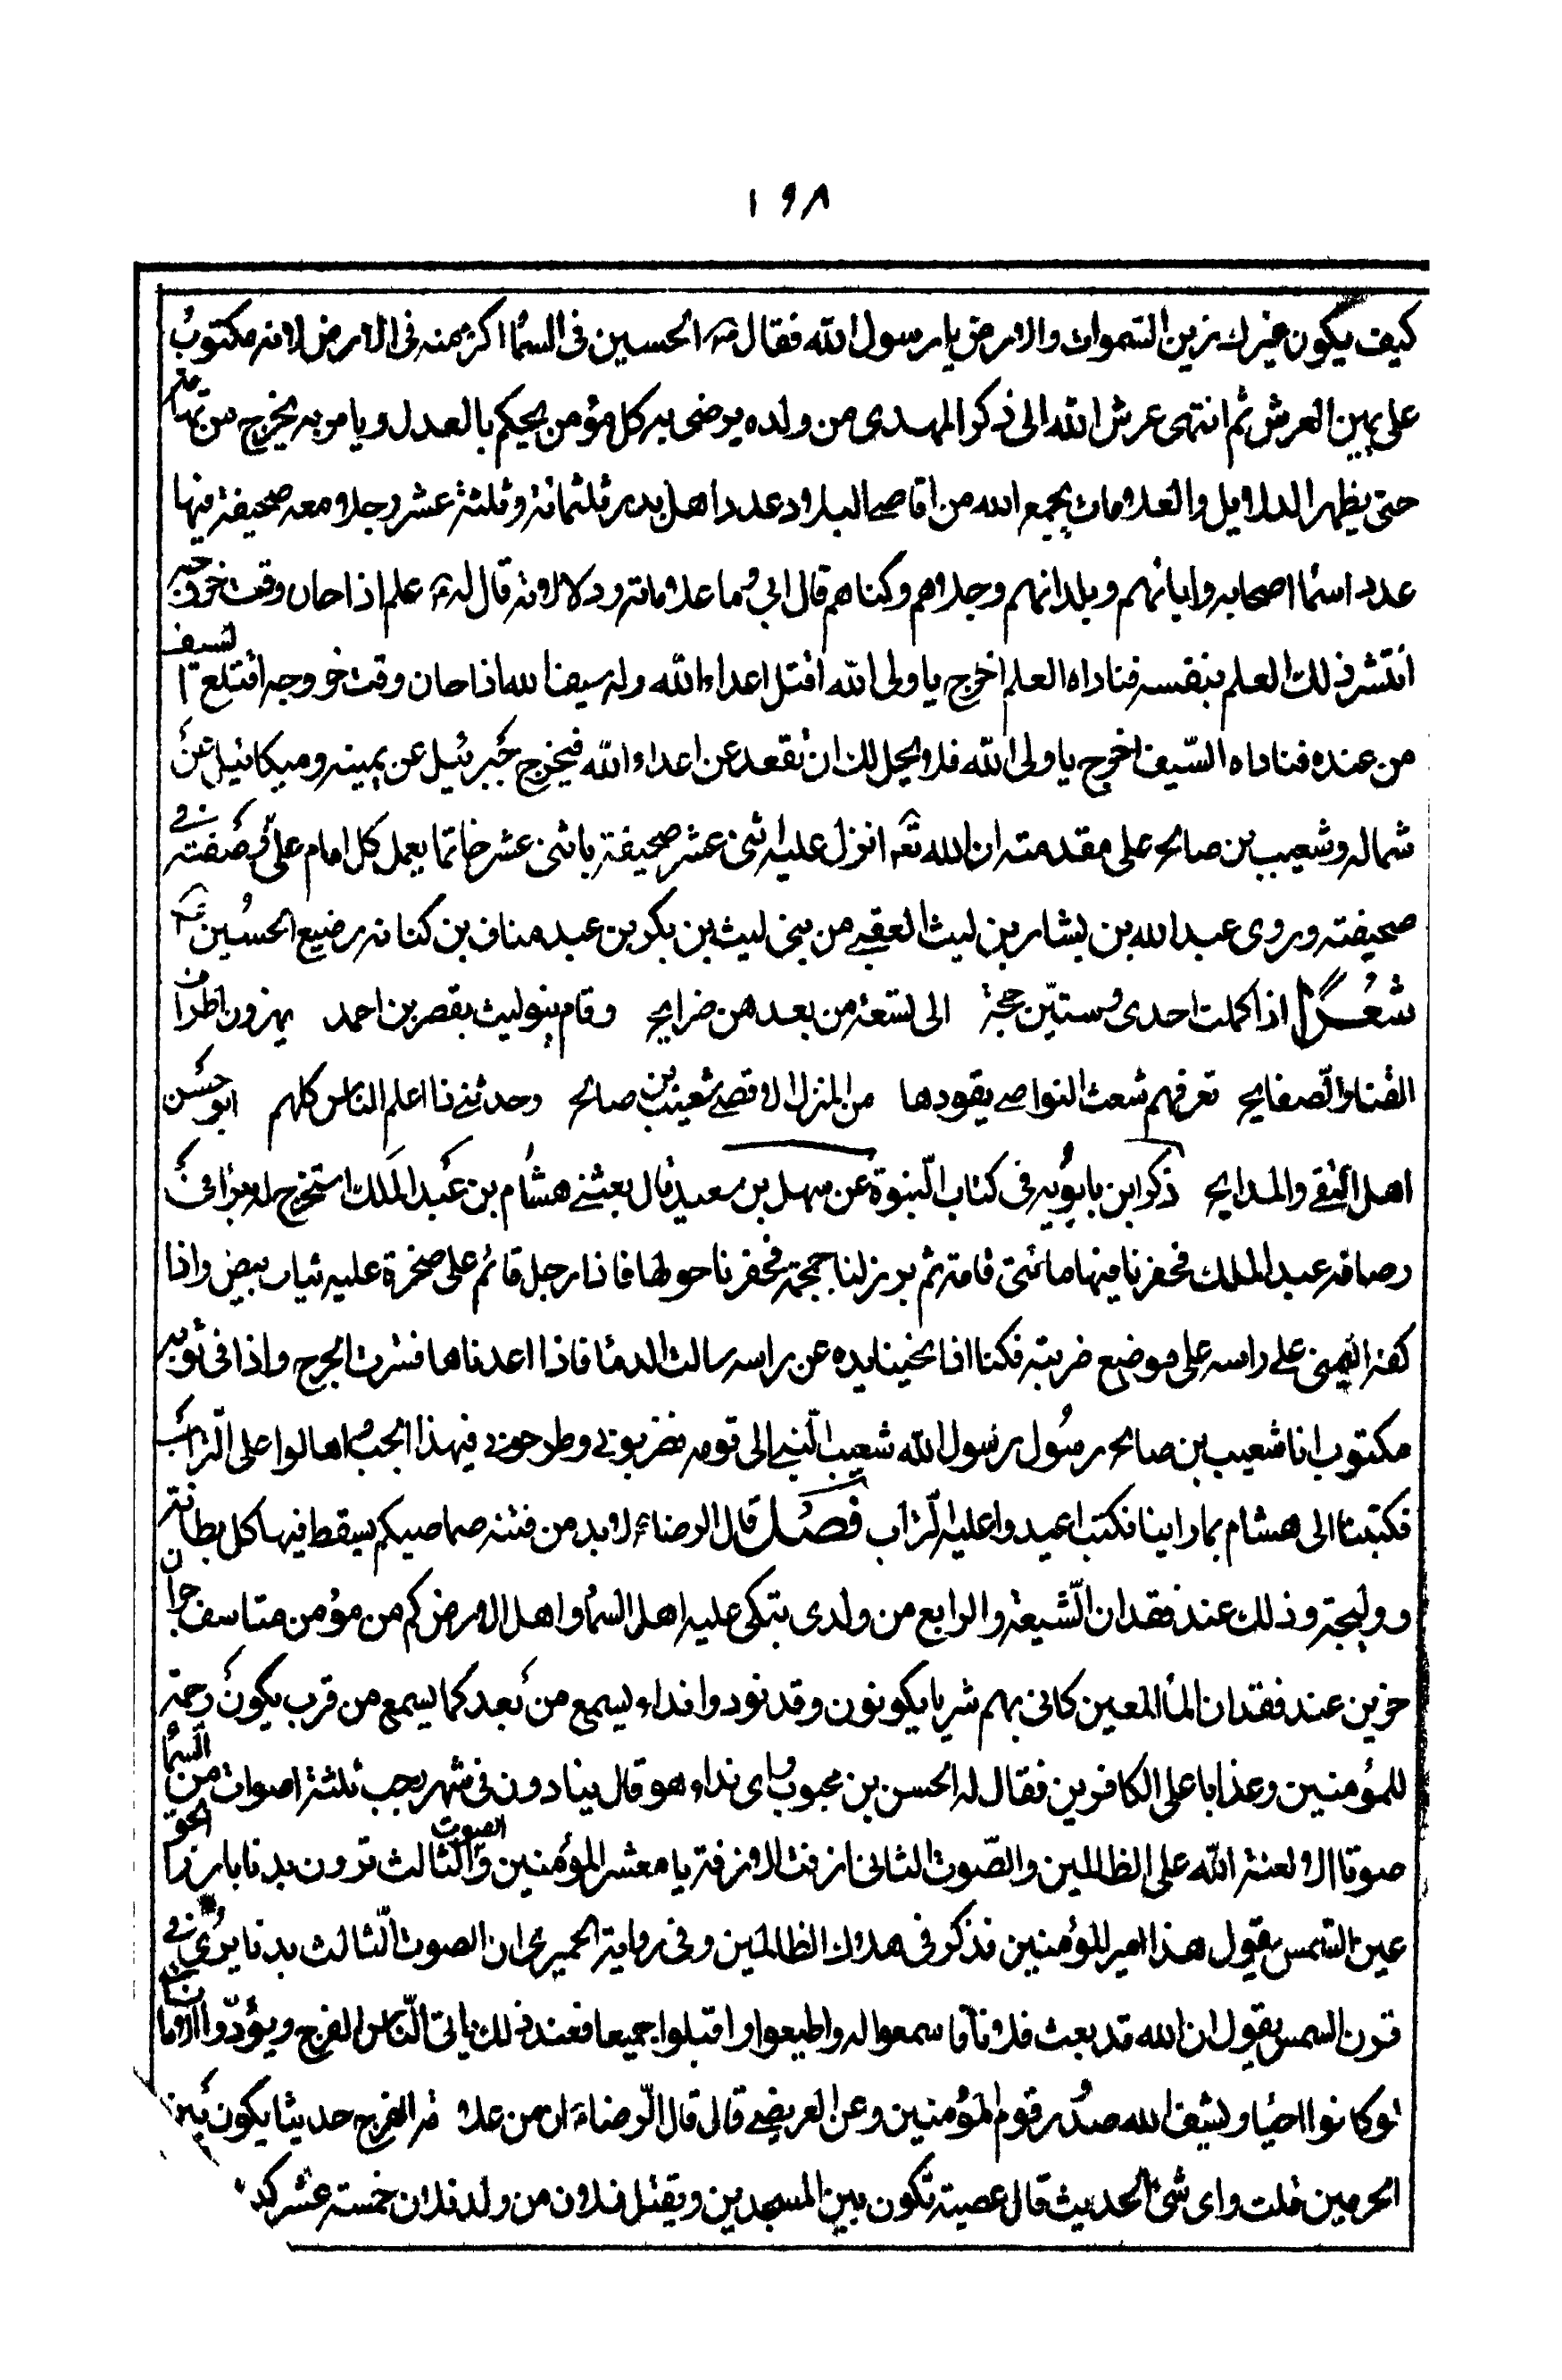 ١٩٨
كيف يكون غيرك زين السموات والارض يا رسول الله فقال الحسين فى السما اكثر منه فى الارض لانه مكتوب
على يمين العرش ثم انتهى عرش الله الى ذكر المهدى من ولده يرضى به كل مؤمن يحكم بالعدل ويامر به يخرج من تهامة
حتى يظهر الدلايل والعلامات يجمع الله من اقاصى البلاد عدد اهل بدر ثلثمائة وثلثة عشر رجلا ومعه صحيفة فيها
عدد اسما اصحابه وابائهم وبلدانهم وحلاهم وكناهم قال ابى وما علاماته ودلالاته قال له علم اذا حان وقت خروجه
انتشر ذلك العلم بنفسه فناداه العلم اخرج يا ولى الله اقتل اعداء الله وله سيف الله اذا حان وقت خروجه اقتلع السيف
من عنده فناداه السيف اخرج يا ولى الله فلا يحل لك ان تقعد عن اعداء الله فيخرج جبرئيل عن يمينه وميكائيل عن
شماله وشعيب بن صالح على مقدمته ان الله انزل عليه اثنى عشر صحيفة باثنى عشر خاتما يعمل كل امام على صفته فى
صحيفته وروى عبد الله بن بشار بن ليث العقبى من بنى ليث بن بكر بن عبد مناف بن كنانه رضيع الحسين
شعرا اذا كملت احدى وستين حجة الى تسعة من بعدهن ضرايح وقام بنو ليث بقصر بن احمد يهزون اطراف
القنا والصفايح تعرفهم شعث النواصى يقودها من المنزل الاقصى شعيب بن صالح وحدثنى ذا اعلم الناس كلهم ابو حسن
اهل التقى والمدايح ذكر ابن بابويه فى كتاب النبوة عن سهل بن سعيد قال بعثنى هشام بن عبد الملك استخرج له بئرا فى
رصافه عبد الملك فحفرنا فيها مائتى قامة ثم برز لنا جمجمة فحفرنا حولها فاذا رجل قائم على صخرة عليه ثياب بيض واذا
كفه اليمنى على راسه على موضع ضربته فكنا اذا نحينا يده عن راسه سالت الدما فاذا اعدناها فسترت الجرح واذا فى ثوبه
مكتوب انا شعيب بن صالح رسول رسول الله شعيب النبى الى قومه فضربونى وطرحونى فى هذا الجب واهالوا على التراب
فكتبنا الى هشام بما راينا فكتب اعيدوا عليه التراب فصل قال الرضاء لابد من فتنه صما صيكم يسقط فيها كل بطانة
ووليجة وذلك عند فقدان الشيعة والرابع من ولدى تبكى عليه اهل السما واهل الارض كم من مؤمن متاسف حران
حزين عند فقدان الما المعين كانى بهم شر يا يكونون وقد نودوا نداء يسمع من بعد كما يسمع من قرب يكون رحمة
للمؤمنين وعذابا على الكافرين فقال له الحسن بن محبوب واى نداء هو قال ينادون فى شهر رجب ثلثة اصوات من السما
صوتا الا لعنة الله على الظالمين والصوت الثانى ازفت الازفة يا معشر المؤمنين والصوت الثالث ترون بدنا بارزا نحو
عين الشمس يقول هذا امير المؤمنين فذكر فى هلاك الظالمين وفى رواية الحميرى ان الصوت الثالث بدنا يرى فى
قرن الشمس يقول ان الله قد بعث فلانا فاسمعوا له واطيعوا واقبلوا جميعا فعند ذلك ياتى الناس الفرج ويؤدوا
لو كانوا احيا ويشف الله صدور قوم المؤمنين وعن العريضى قال قال الرضا ان من علا مة الفرج حديثا يكون بين
الحرمين قلت واى شئ الحديث قال عصبة تكون بين المسجدين ويقتل فلان من ولد فلان خمسة عشر